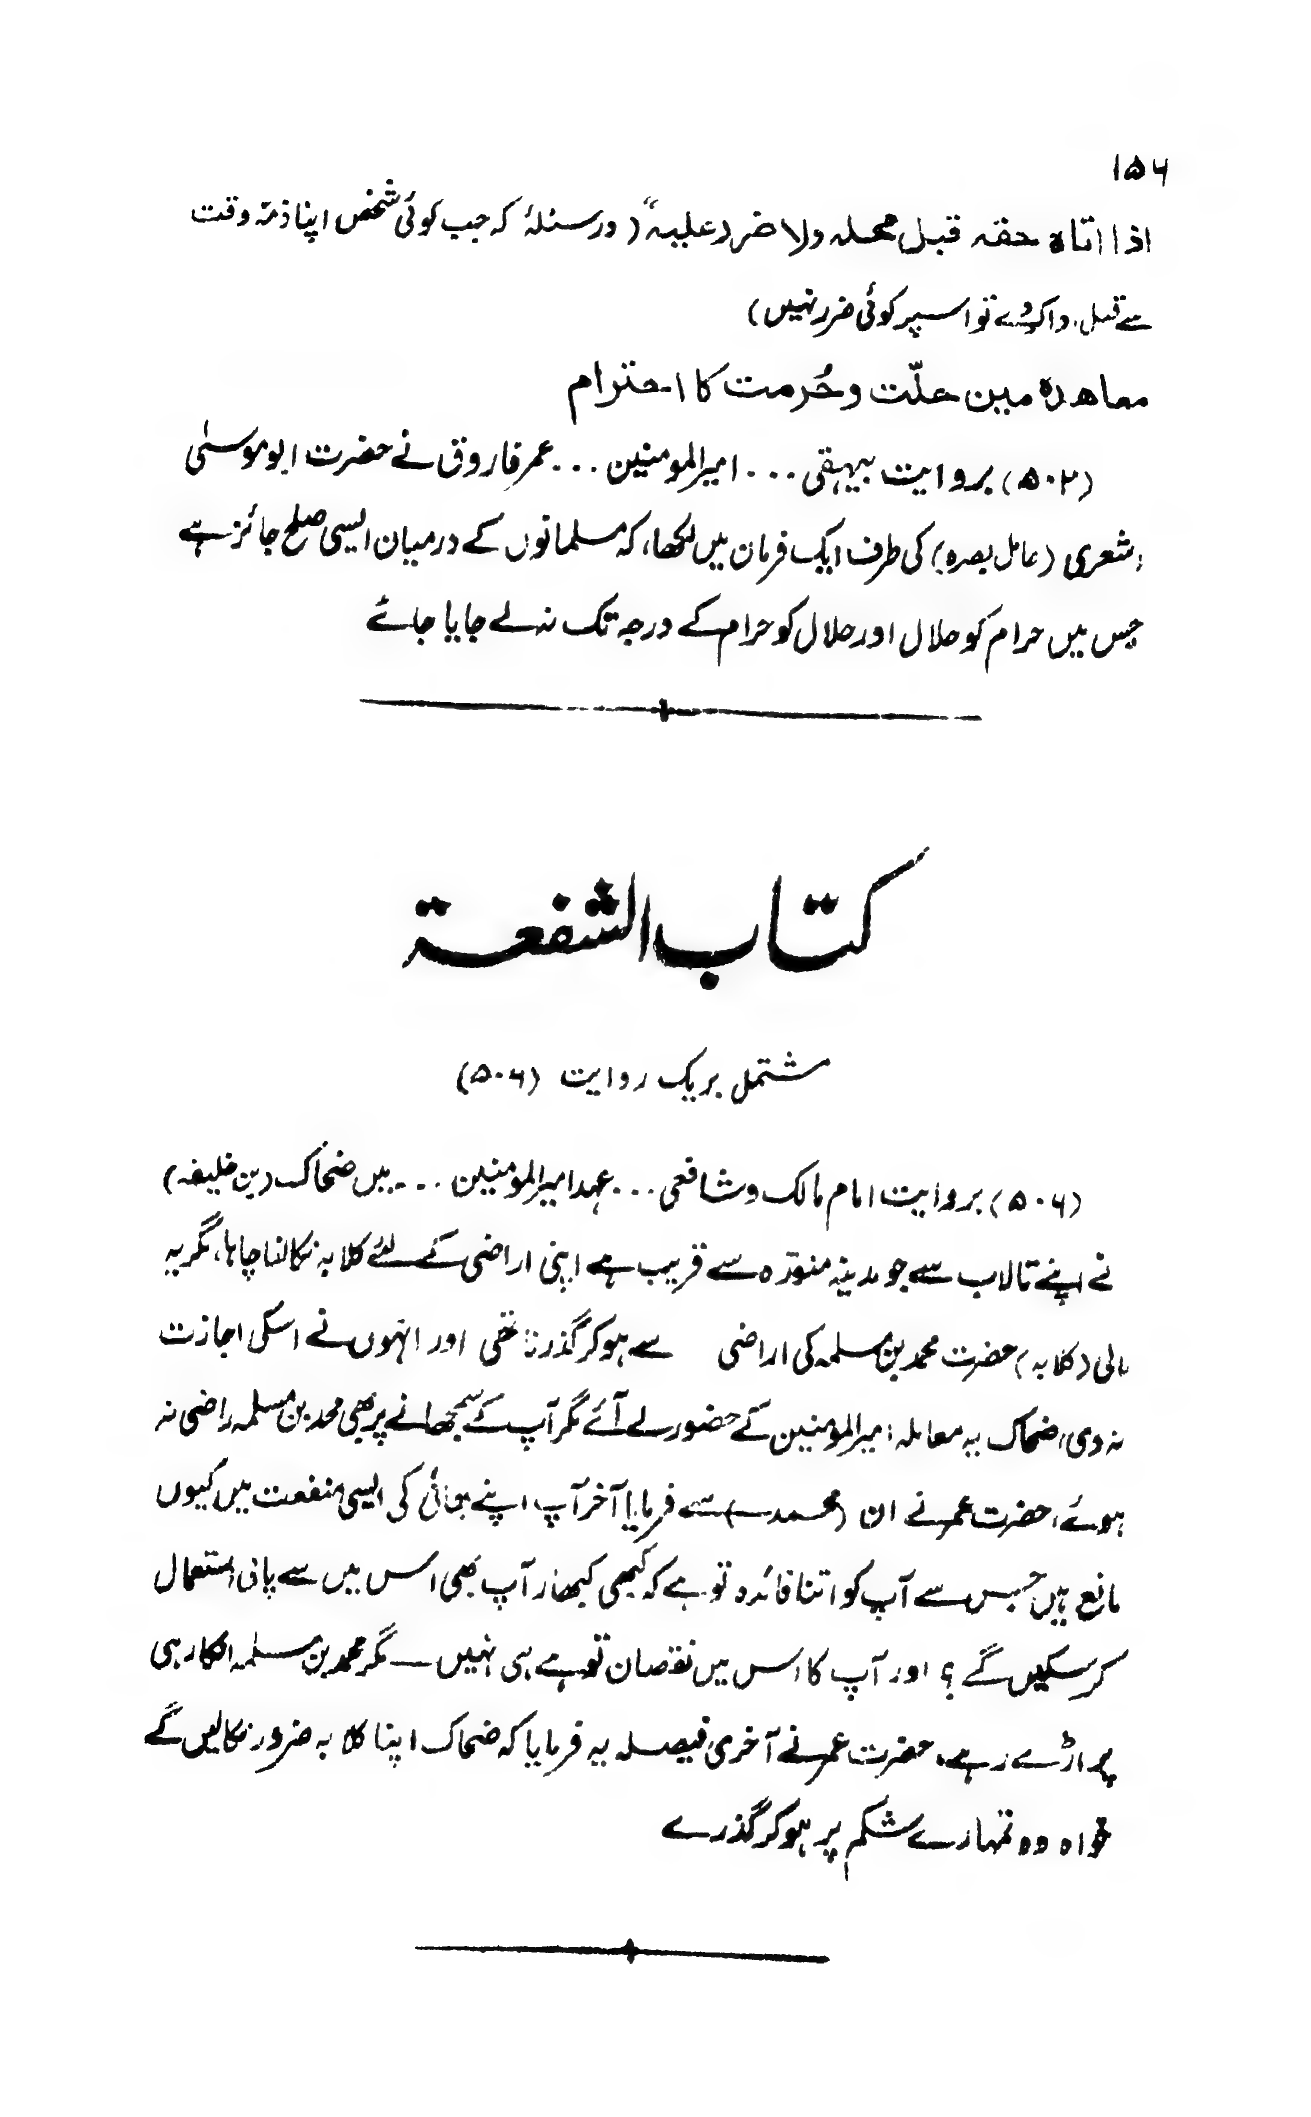 ۱۵۶
اذا اتاہ حقہ قبل محملہ ولا ضرر علیہ" (در سئلۂ کہ جب کوئی شخص اپنا ذمہ وقت
سے قبل ادا کر دے تو اسپر کوئی ضرر نہیں)
معاھدہ میں حلّت و حُرمت کا احترام
(۵۰۲) بروایت بیہقی ... امیرالمومنین ... عمر فاروق نے حضرت ابو موسیٰ
اشعری (عامل بصرہ) کی طرف ایک فرمان میں لکھا، کہ مسلمانوں کے درمیان ایسی صلح جائز ہے
جس میں حرام کو حلال اور حلال کو حرام کے درجہ تک نہ لے جایا جائے
کتاب الشفعۃ
مشتمل بریک روایت (۵۰۶)
(۵۰۶) بروایت امام مالک و شافعی ... عہد امیرالمومنین ... میں ضحاک (بن خلیفہ)
نے اپنے تالاب سے جو مدینہ منوّرہ سے قریب ہے اپنی اراضی کے لئے کلابہ نکالنا چاہا، مگر یہ
نالی (کلابہ) حضرت محمد بن مسلمہ کی اراضی سے ہو کر گذرنا تھی اور انہوں نے اسکی اجازت
نہ دی، ضحاک یہ معاملہ امیرالمؤمنین کے حضور لے آئے مگر آپ کے سمجھانے پر بھی محمد بن مسلمہ راضی نہ
ہوئے، حضرت عمر نے ان (محمد ــ) سے فرمایا آخر آپ اپنے بھائی کی ایسی منفعت میں کیوں
مانع ہیں جس سے آپ کو اتنا فائدہ تو ہے کہ کبھی کبھار آپ بھی اس میں سے پانی استعمال
کر سکیں گے ؟ اور آپ کا اس میں نقصان تو ہے ہی نہیں — مگر محمد بن مسلمہ انکار ہی
پر اڑے رہے، حضرت عمر نے آخری فیصلہ یہ فرمایا کہ ضحاک اپنا کلابہ ضرور نکالیں گے
خواہ وہ تمہارے شکم پر ہو کر گذرے